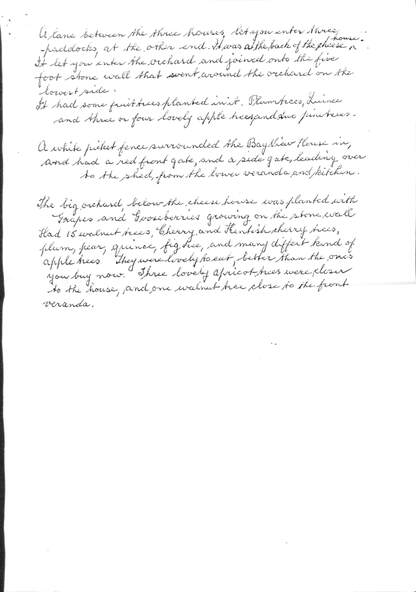 A lane between the three houses, let you enter three
paddocks, at the other end. It was at the back of the cheese house.
It let you enter the orchard and joined onto the five
foot stone wall that went around the orchard on the
lowest side.
It had some fruit trees planted in it. Plum trees, Quince
and three or four lovely apple trees and two pine trees.
A white picket fence surrounded the Bayview House in,
and had a red front gate, and a side gate, leading over
to the shed, from the lower veranda and kitchen.
The big orchard below the cheese house was planted with
Grapes and Gooseberries growing on the stone wall
Had 15 walnut trees, Cherry and Kentish cherry trees,
plum, pear, quince, fig tree, and many differt kind of
apple trees They were lovely to eat, better than the ones
you buy now. Three lovely apricot trees were closer
to the house, and one walnut tree close to the front
veranda.